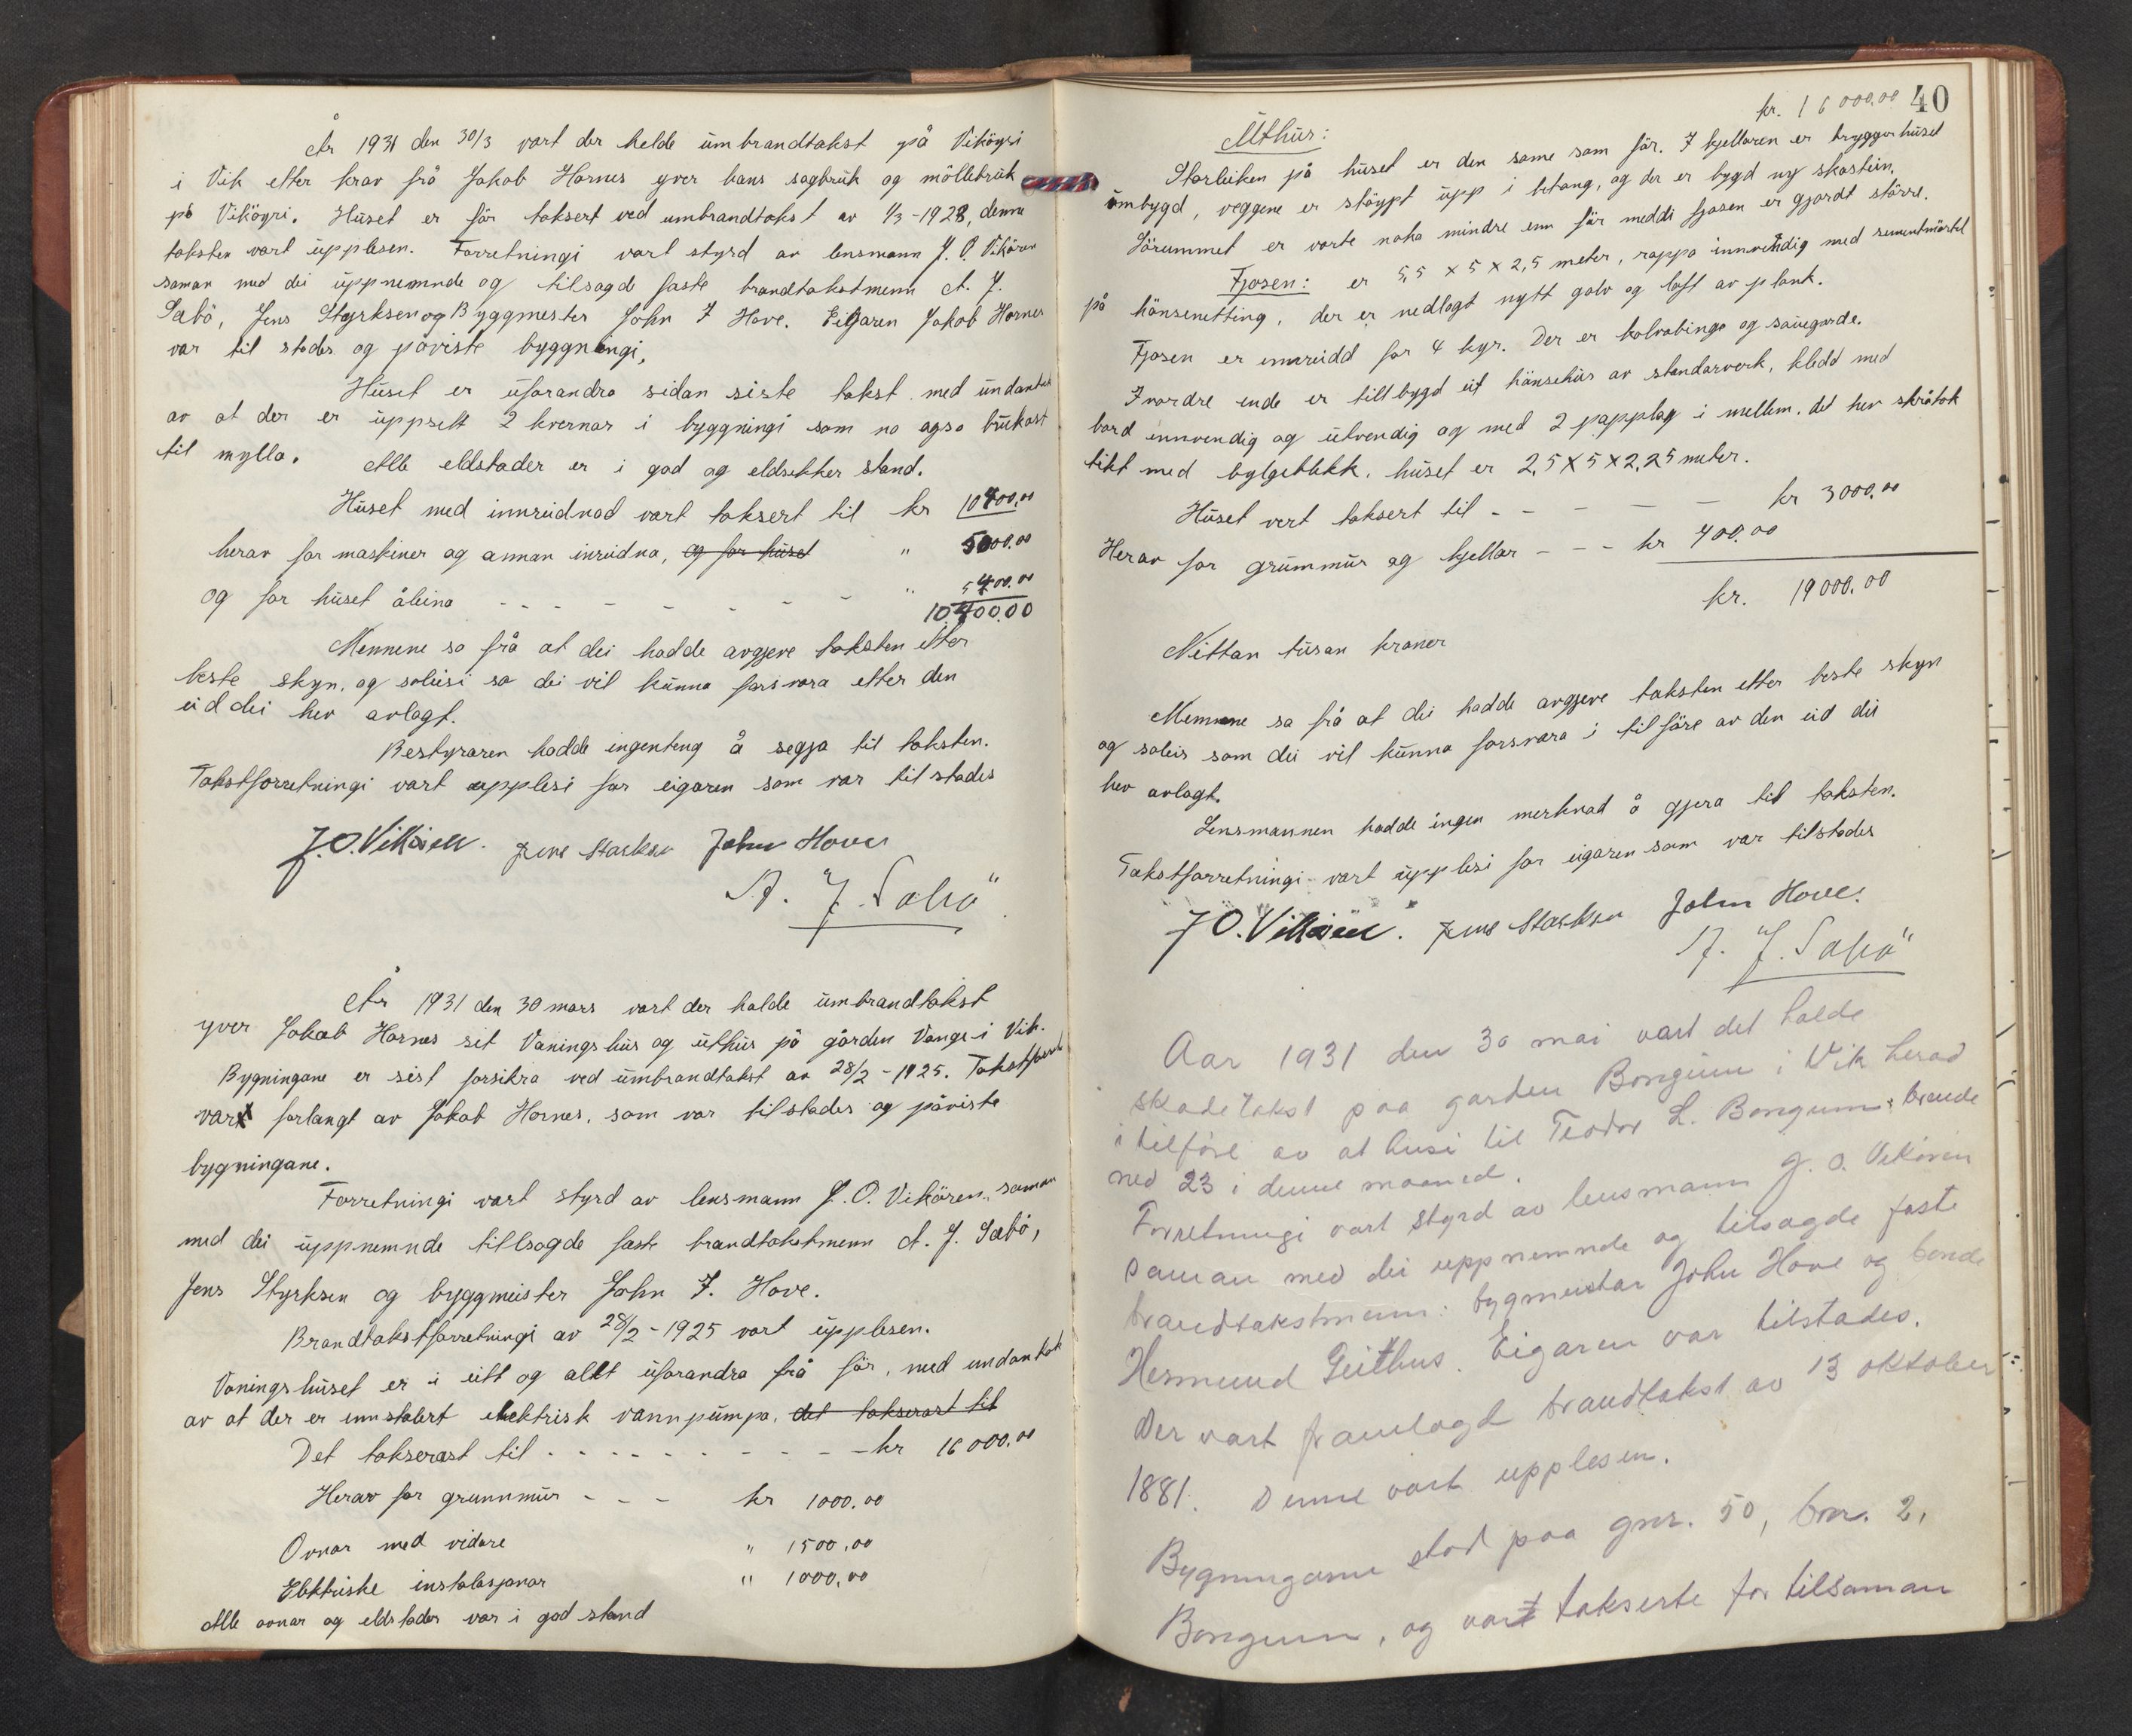 År 1931 den 30/3 vart der helde umbrandtakst på Vikøyri
i Vik etter krav frå Jakob Hornes yver hans sagbruk og möllebruk
på Vikøyri. Huset er før taksert ved umbrandtakst av 1/3-1928, denne
taksten vart upplesen. Forretningi vart styrd av lensmann J. O. Vikören
saman med dei uppnemnde og tilsagde faste brandtakstmenn A. J.
Sabö, Jens Styrksen og Byggmester John J Hove. Eigaren Jakob Hornes
var til stades og påviste byggningi.
Huset er uforandra sidan siste takst med undantak
av at der er uppsett 2 kvernar i byggningi som no ogso brukast
til mylla. Alle eldstader er i god og eldsikker stand.
Huset med innreidnad vart taksert til kr 10400.00
herav for maskiner og annan inreidna, og for huset " 5000.00
og for huset åleina - - - - - - - " 5400.00
10.400.00
Mennene sa frå at dei hadde avgjeve taksten etter
beste skyn, og soleisi so dei vil kunna forsvara etter den
eid dei hev avlagt.
Bestyraren hadde ingenteng å segja til taksten.
Takstforretningi vart upplesi for eigaren som var til stades
J.O. Vikören. Jens Starksen John Hove
A. J. Sabö
År 1931 den 30 mars vart der halde umbrandtakst
yver Jakob Hornes sit Vaningshus og uthus på gården Vange i Vik.
Bygningane er sist forsikra ved umbrandtakst av 28/2-1925. Takstforretn
vart forlangt av Jakob Hornes, som var tilstades og påviste
bygningane.
Forretningi vart styrd av lensmann J. O. Vikören, saman
med dei uppnemnde tillsagde faste brandtakstmenn A. J. Sabö,
Jens Styrksen og byggmeister John J. Hove.
Brandtakstforretningi av 28/2-1925 vart upplesen.
Voningshuset er i eitt og allt uforandra frå før, med undantak
av at der er innstalert elektrisk vannpumpa. det takserast til
Det takserast til - - - - - - - - - kr 16000.00
Herav for grunnmur - - - kr 1000.00
Ovnar med vidare " 1500.00
Elektriske instalasjonar " 1000.00
Alle ovnar og eldstader var i god stand
40
kr. 16000.00
Uthus:
Storleiken på huset er den same som før. I kjellaren er bryggarhuset
umbygd, veggene er støypt upp i betong, og der er bygd ny skostein.
Lörummet er vorte noko mindre enn før meddi fjosen er gjordt större.
Fjosen: er 5,5 x 5 x 2,5 meter, rappa innvendig med sementmörtel
på hönsenetting, der er nedlagt nytt golv og loft av plank.
Fjosen er innreidd for 4 kyr. Der er kalvabinge og sauegarde.
I nordre ende er tillbygd eit hönsehus av standarverk, kledd med
bord innvendig og utvendig og med 2 papplag i mellem. det hev skråtak
tekt med bylgeblekk. huset er 2,5 x 5 x 2,25 meter.
Huset vert taksert til - - - - - kr 3000.00
Herav for grunnmur og kjellar - - - kr 400.00
kr. 19000.00
Nittan tusan kroner
Mennene sa frå at dei hadde avgjeve taksten etter beste skyn
og soleis som dei vil kunna forsvara i tilføre av den eid dei
hev avlagt.
Lensmannen hadde ingen merknad å gjera til taksten.
Takstforretningi vart upplesi for eigaren som var tilstades
J O. Vikören. Jens Starksen John Hove.
A. J. Sabö
Aar 1931 den 30 mai vart det halde
skadetakst paa garden Bongum i Vik herad
i tilföre av at husi til Teodor L. Bongum brende
ned 23 i denne maaned.
Forretningi vart styrd av lensmann J. O. Vikören
saman med dei uppnemnde og tilsagde faste
brandtakstmenn: bygmeistar John Hove og bonde
Hermund Geithus. Eigaren var tilstades.
Der vart framlagd brandtakst av 13 oktober
1881. Denne vart upplesen.
Bygningarne stod paa gnr. 50, bnr. 2,
Bongum, og vart takserte for tilsaman